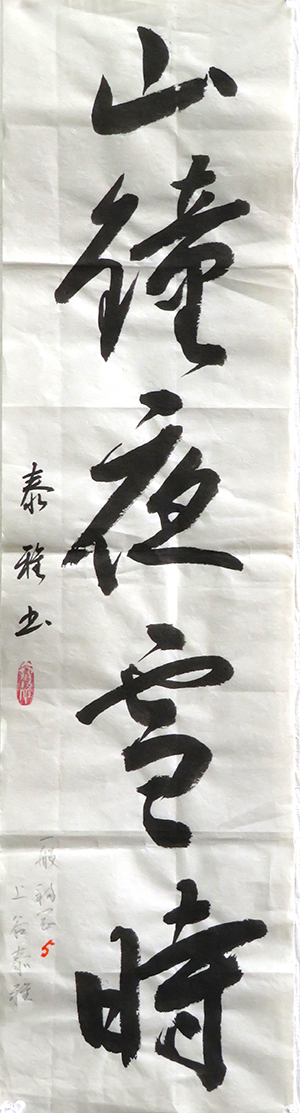 山鐘夜雪時
泰雅书
一般
上谷泰雅
5